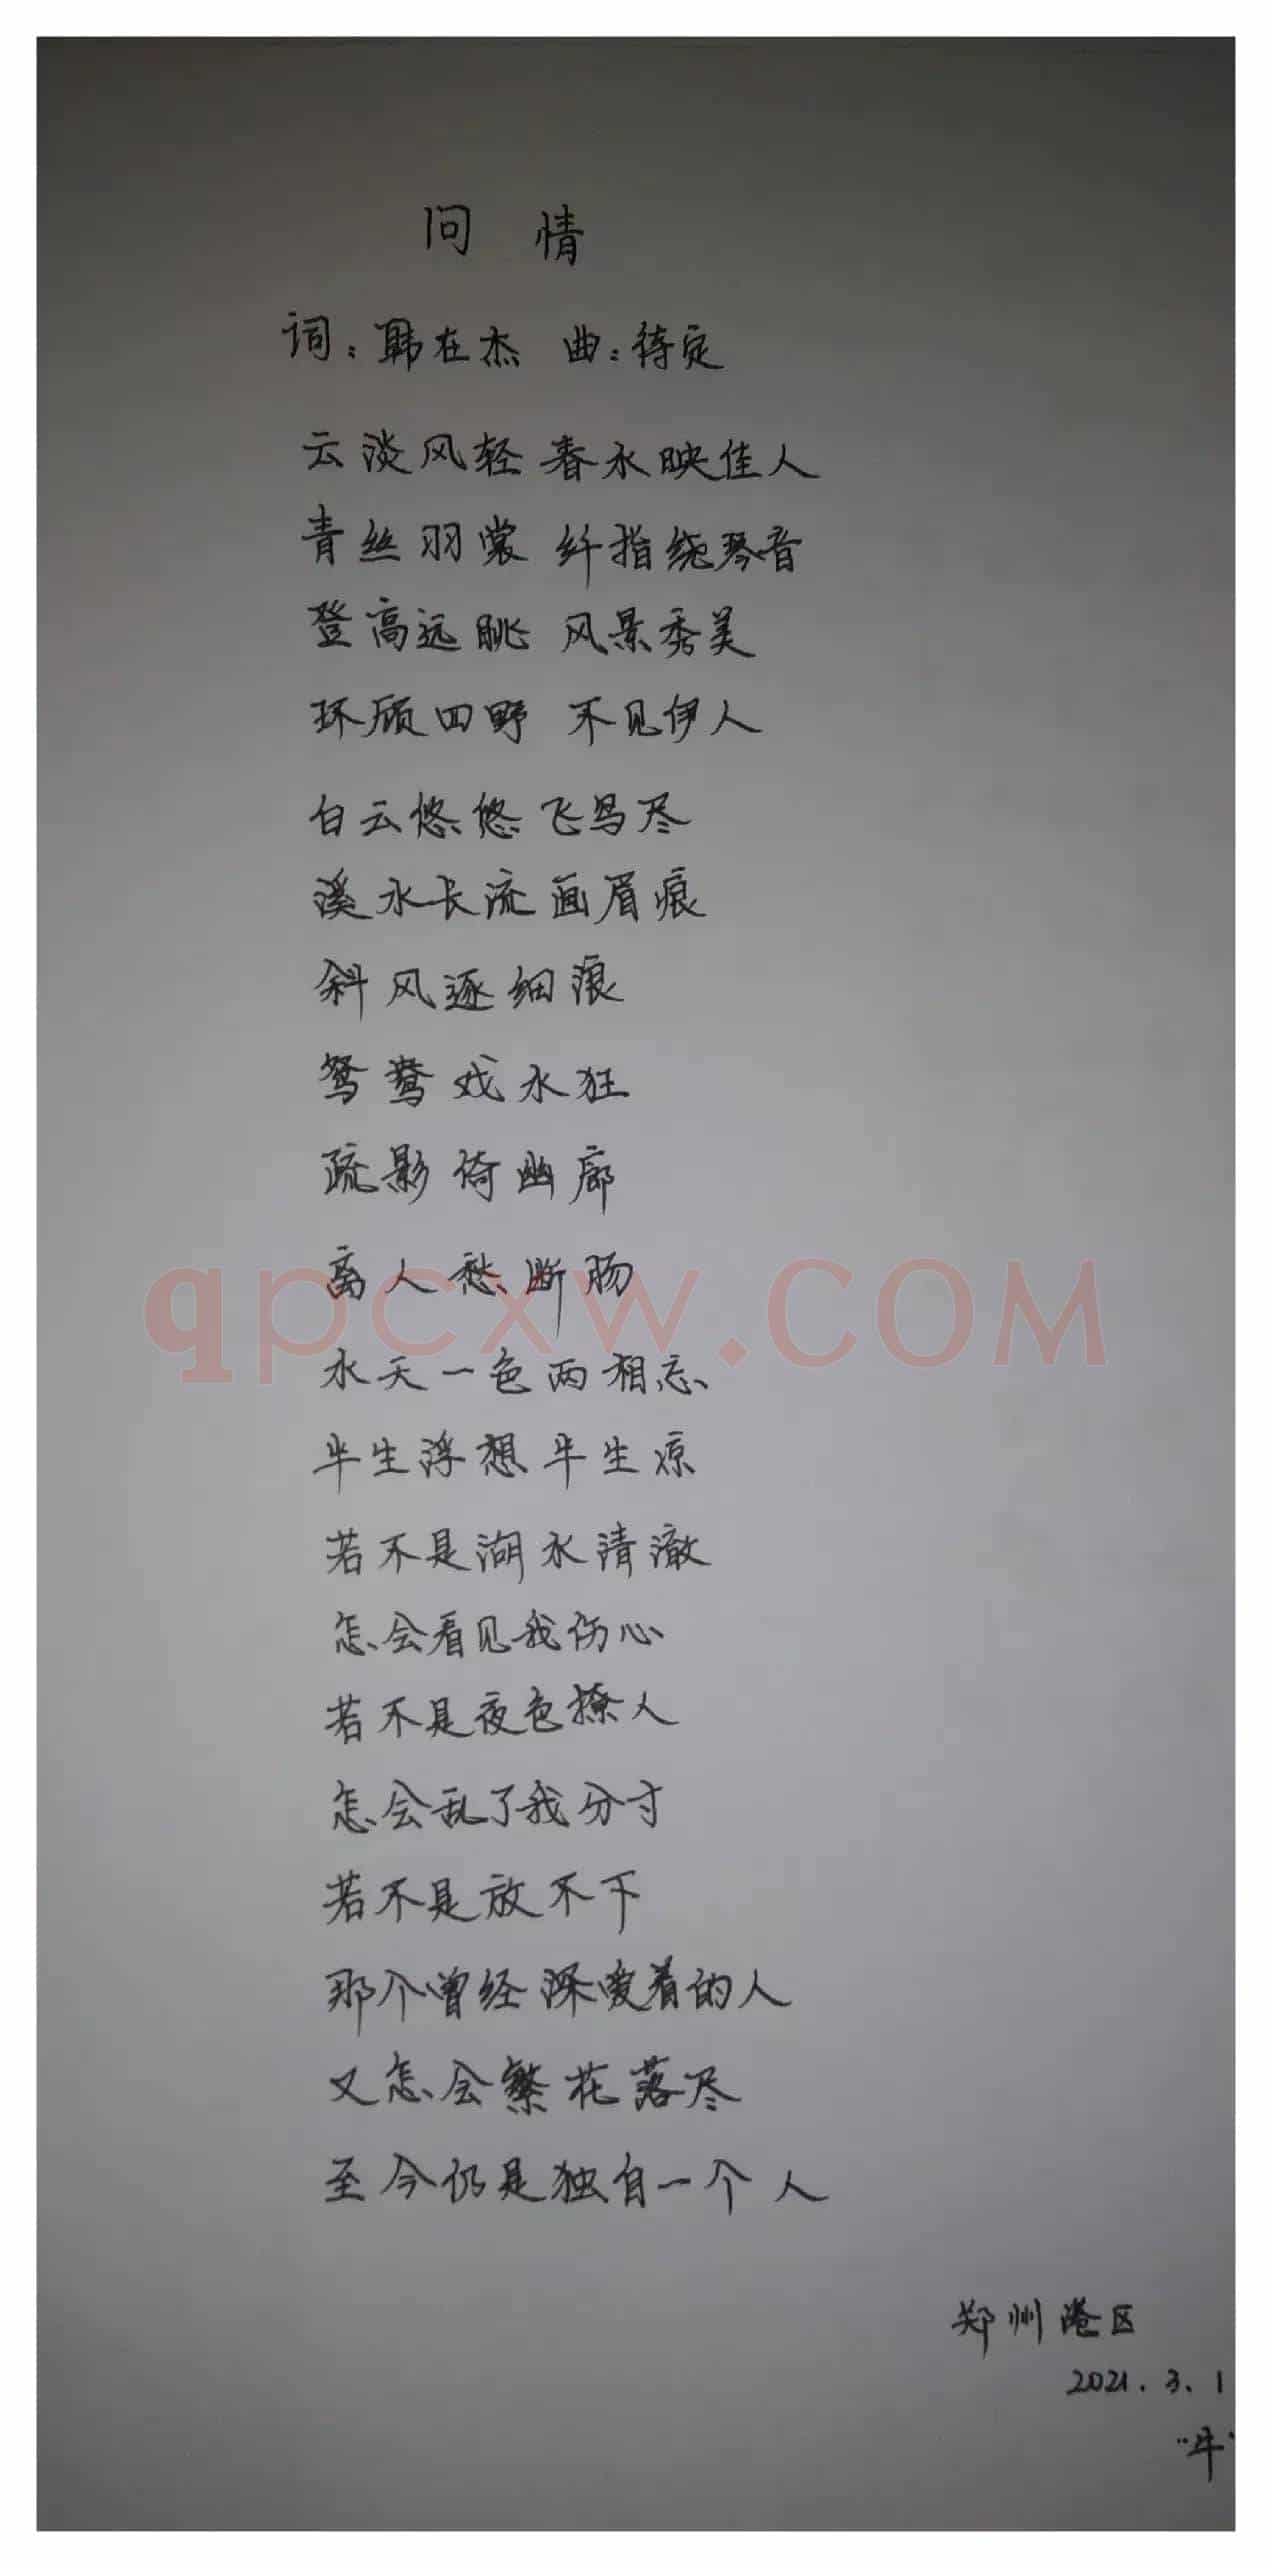 问 情
词：韩在杰 曲：待定
云淡风轻 春水映佳人
青丝羽裳 纤指绕琴音
登高远眺 风景秀美
环顾四野 不见伊人
白云悠悠飞鸟尽
溪水长流画眉痕
斜风逐细浪
鸳鸯戏水狂
疏影倚幽廊
离人愁断肠
qpcxw.COM
水天一色两相忘
半生浮想半生凉
若不是湖水清澈
怎会看见我伤心
若不是夜色撩人
怎会乱了我分寸
若不是放不下
那个曾经深爱着的人
又怎会繁花落尽
至今仍是独自一个人
郑州港区
2021.3.1
“牛”